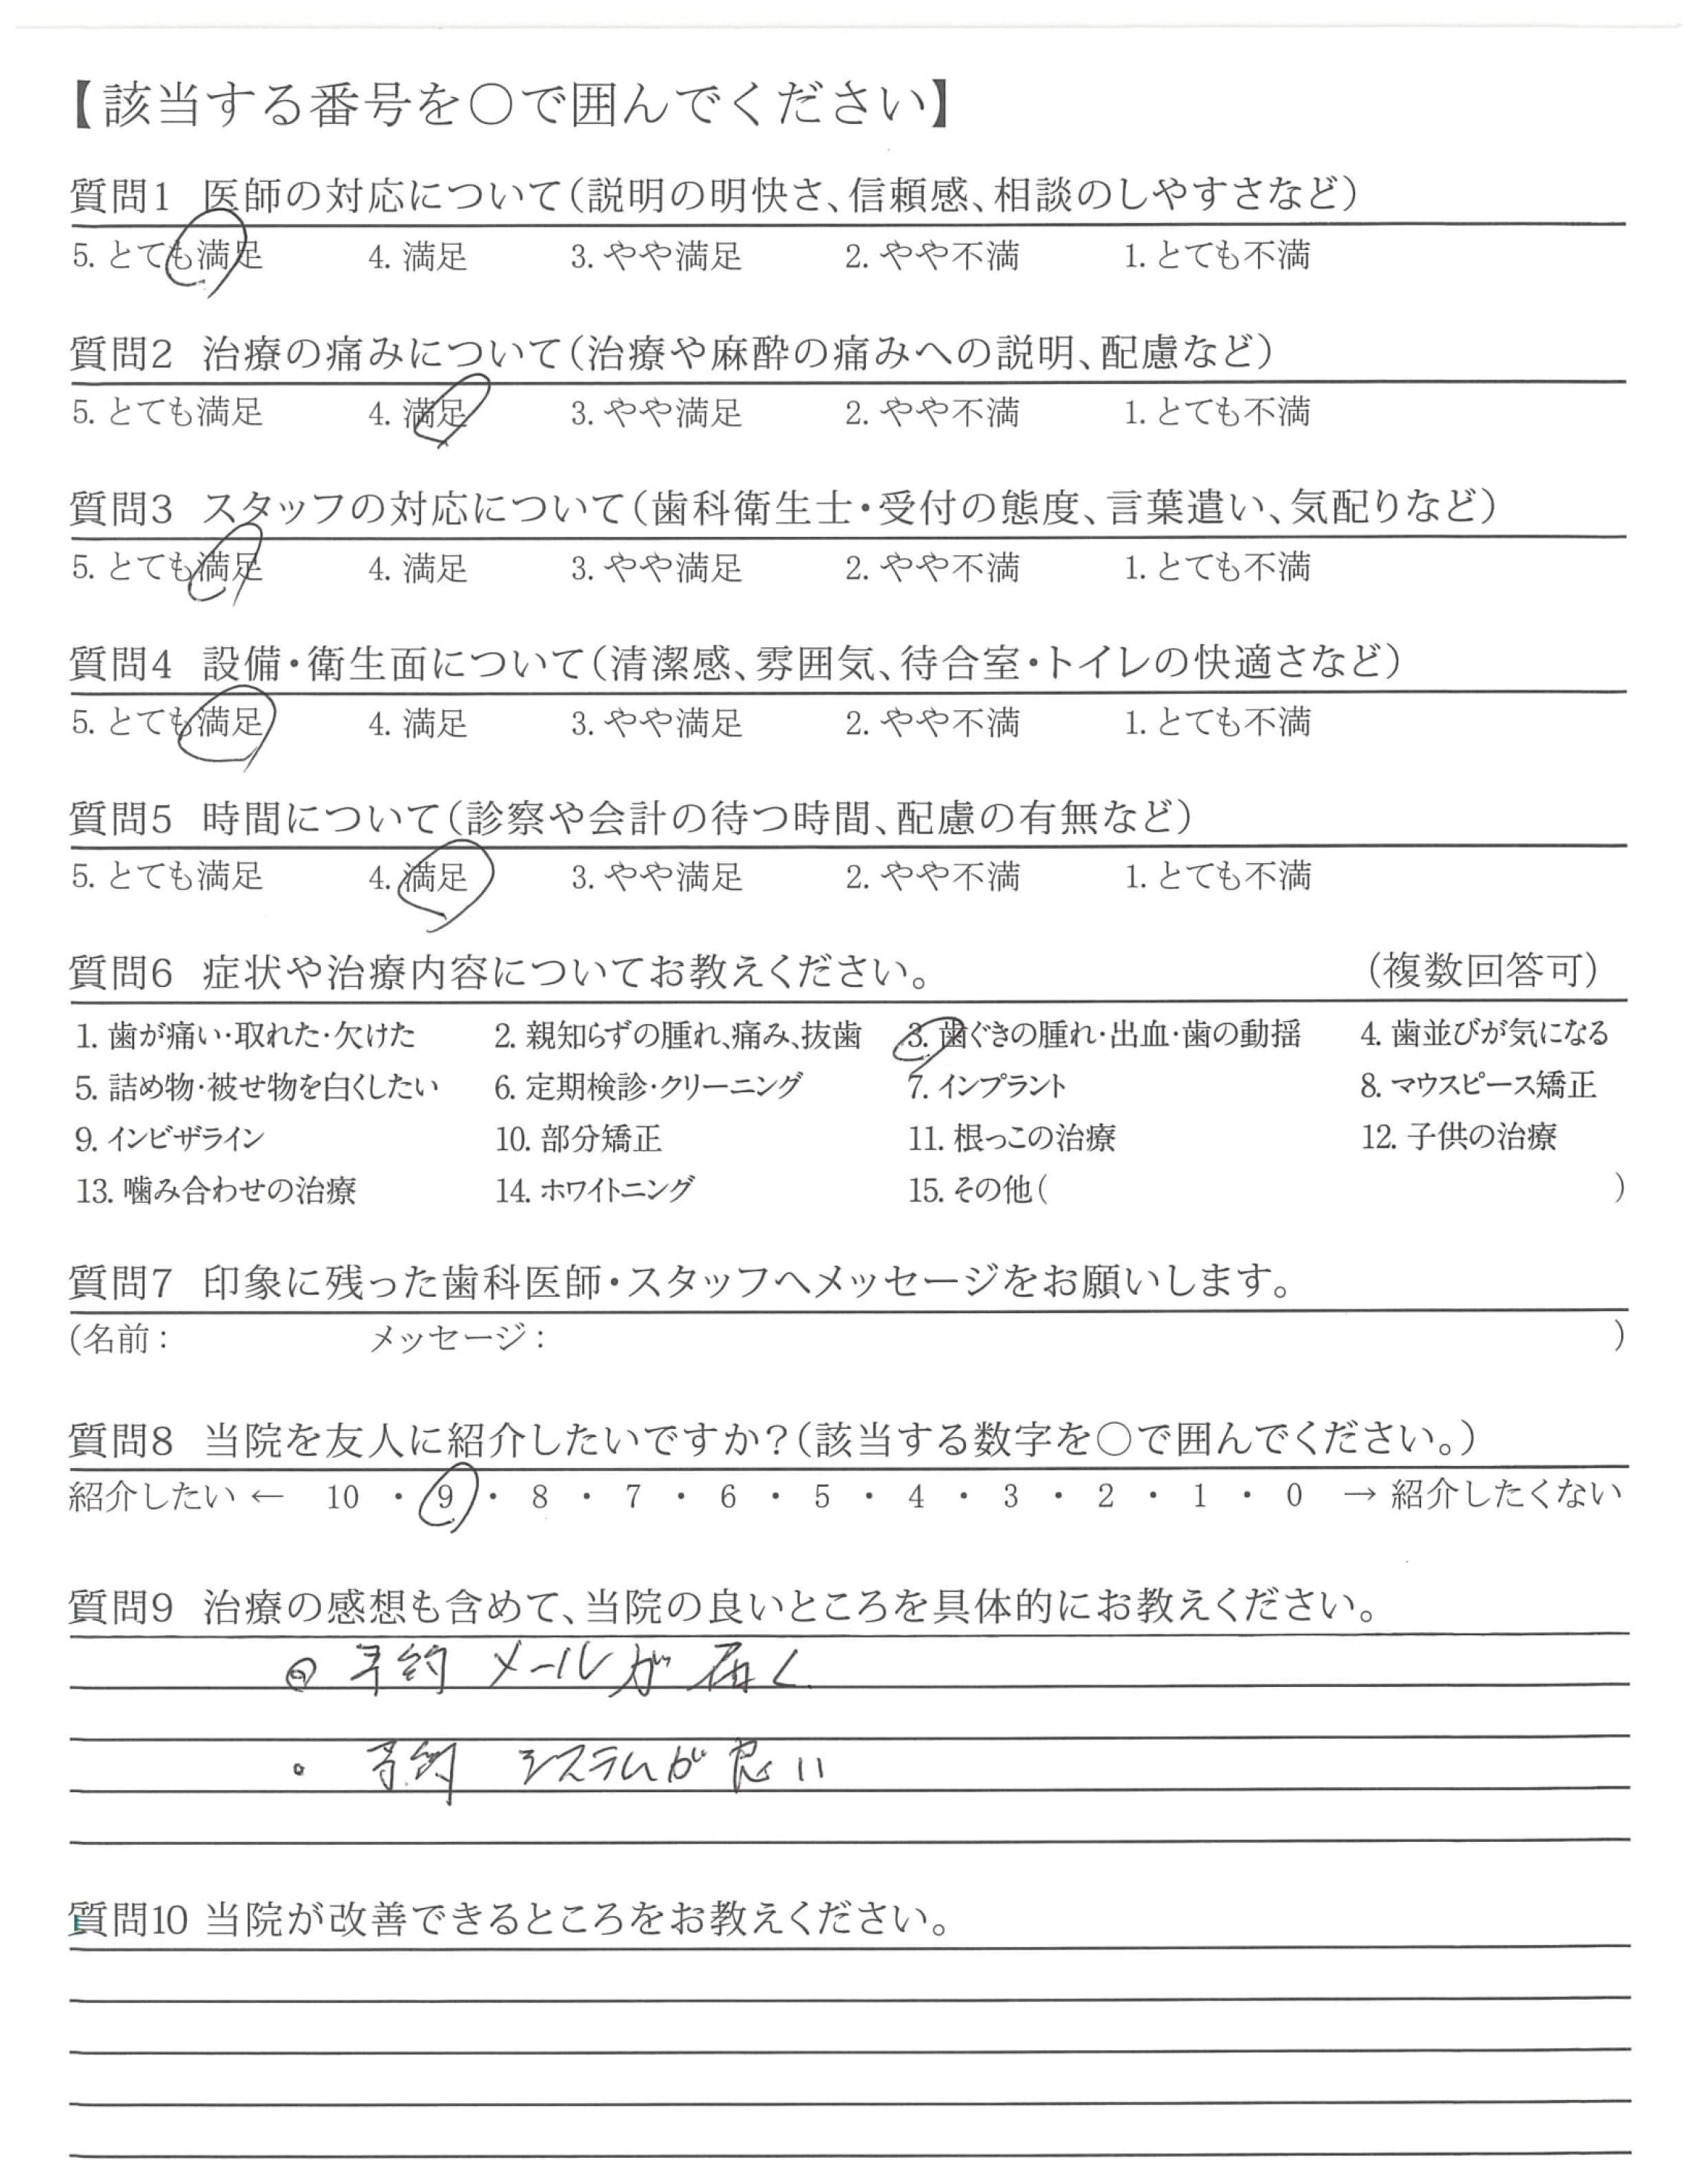 【該当する番号を〇で囲んでください】
質問1 医師の対応について(説明の明快さ、信頼感、相談のしやすさなど)
5. とても満足 4. 満足 3. やや満足 2. やや不満 1. とても不満
質問2 治療の痛みについて(治療や麻酔の痛みへの説明、配慮など)
5. とても満足 4. 満足 3. やや満足 2. やや不満 1. とても不満
質問3 スタッフの対応について(歯科衛生士・受付の態度、言葉遣い、気配りなど)
5. とても満足 4. 満足 3. やや満足 2. やや不満 1. とても不満
質問4 設備・衛生面について(清潔感、雰囲気、待合室・トイレの快適さなど)
5. とても満足 4. 満足 3. やや満足 2. やや不満 1. とても不満
質問5 時間について(診察や会計の待つ時間、配慮の有無など)
5. とても満足 4. 満足 3. やや満足 2. やや不満 1. とても不満
質問6 症状や治療内容についてお教えください。 (複数回答可)
1. 歯が痛い・取れた・欠けた 2. 親知らずの腫れ、痛み、抜歯 3. 歯ぐきの腫れ・出血・歯の動揺 4. 歯並びが気になる
5. 詰め物・被せ物を白くしたい 6. 定期検診・クリーニング 7. インプラント 8. マウスピース矯正
9. インビザライン 10. 部分矯正 11. 根っこの治療 12. 子供の治療
13. 噛み合わせの治療 14. ホワイトニング 15. その他( )
質問7 印象に残った歯科医師・スタッフへメッセージをお願いします。
(名前: メッセージ: )
質問8 当院を友人に紹介したいですか?(該当する数字を〇で囲んでください。)
紹介したい ← 10 ・ 9 ・ 8 ・ 7 ・ 6 ・ 5 ・ 4 ・ 3 ・ 2 ・ 1 ・ 0 → 紹介したくない
質問9 治療の感想も含めて、当院の良いところを具体的にお教えください。
◎ 予約 メールが 届く
。 予約 システムが 良い
質問10 当院が改善できるところをお教えください。